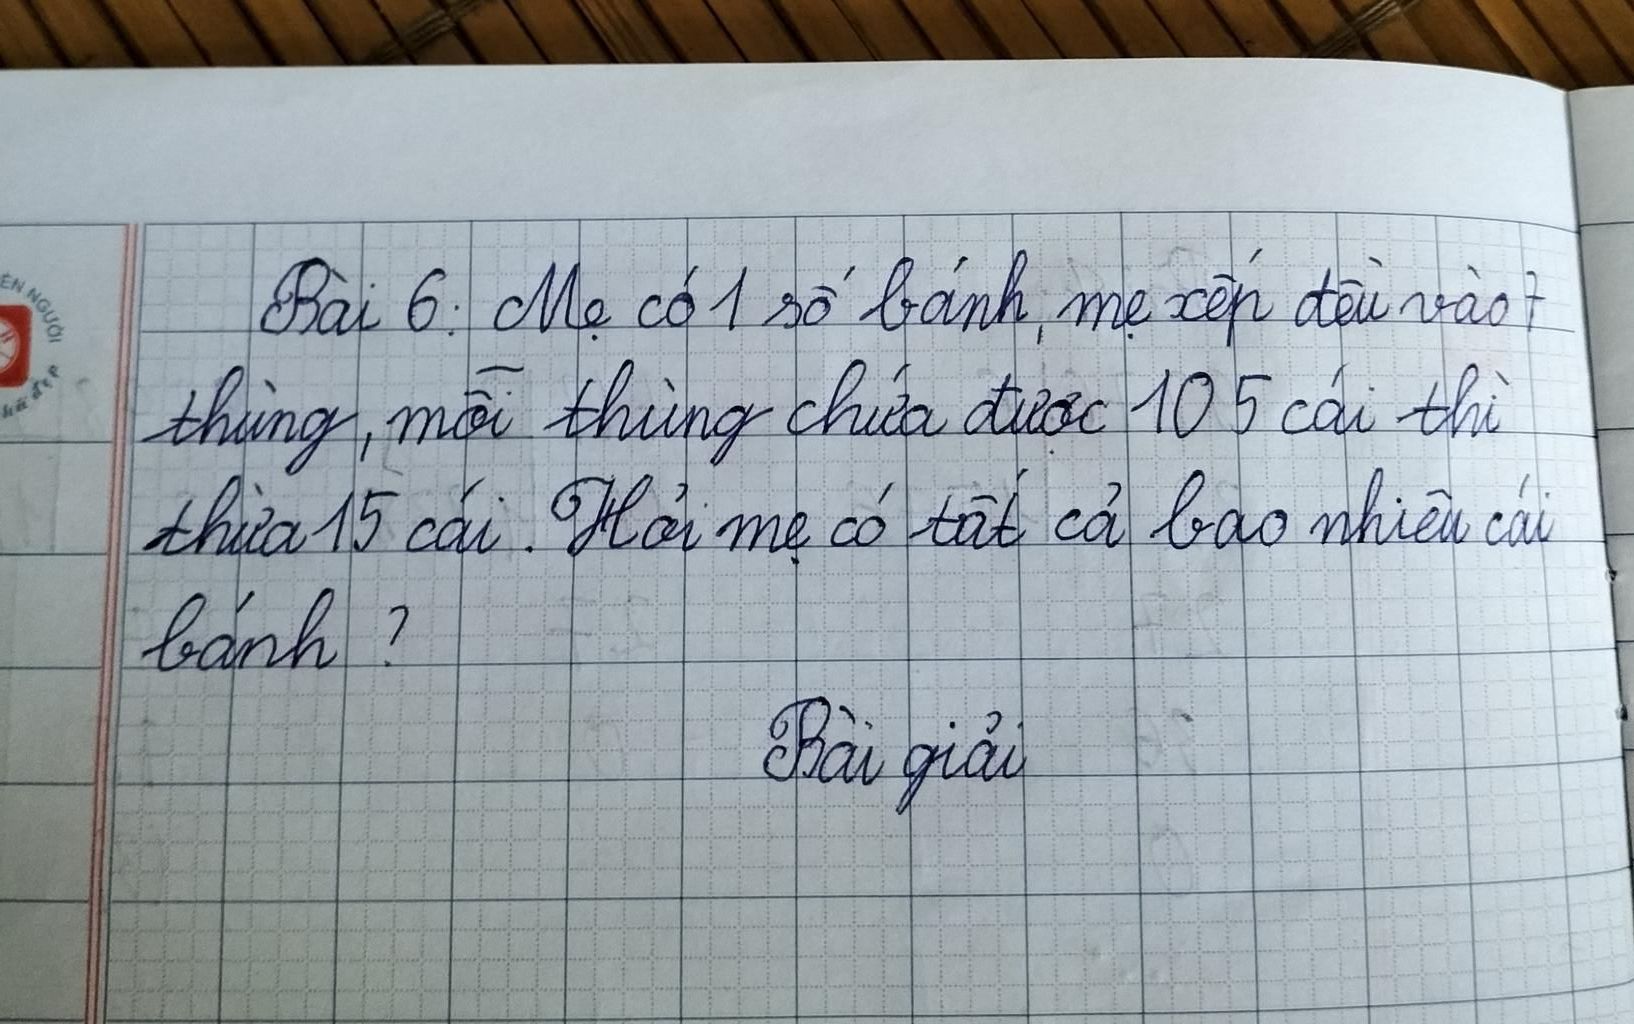 ÊN NGƯỜI
Bài 6: Mẹ có 1 số bánh, mẹ xếp đều vào 7
thùng, mỗi thùng chứa được 105 cái thì
thừa 15 cái. Hỏi mẹ có tất cả bao nhiêu cái
bánh ?
Bài giải